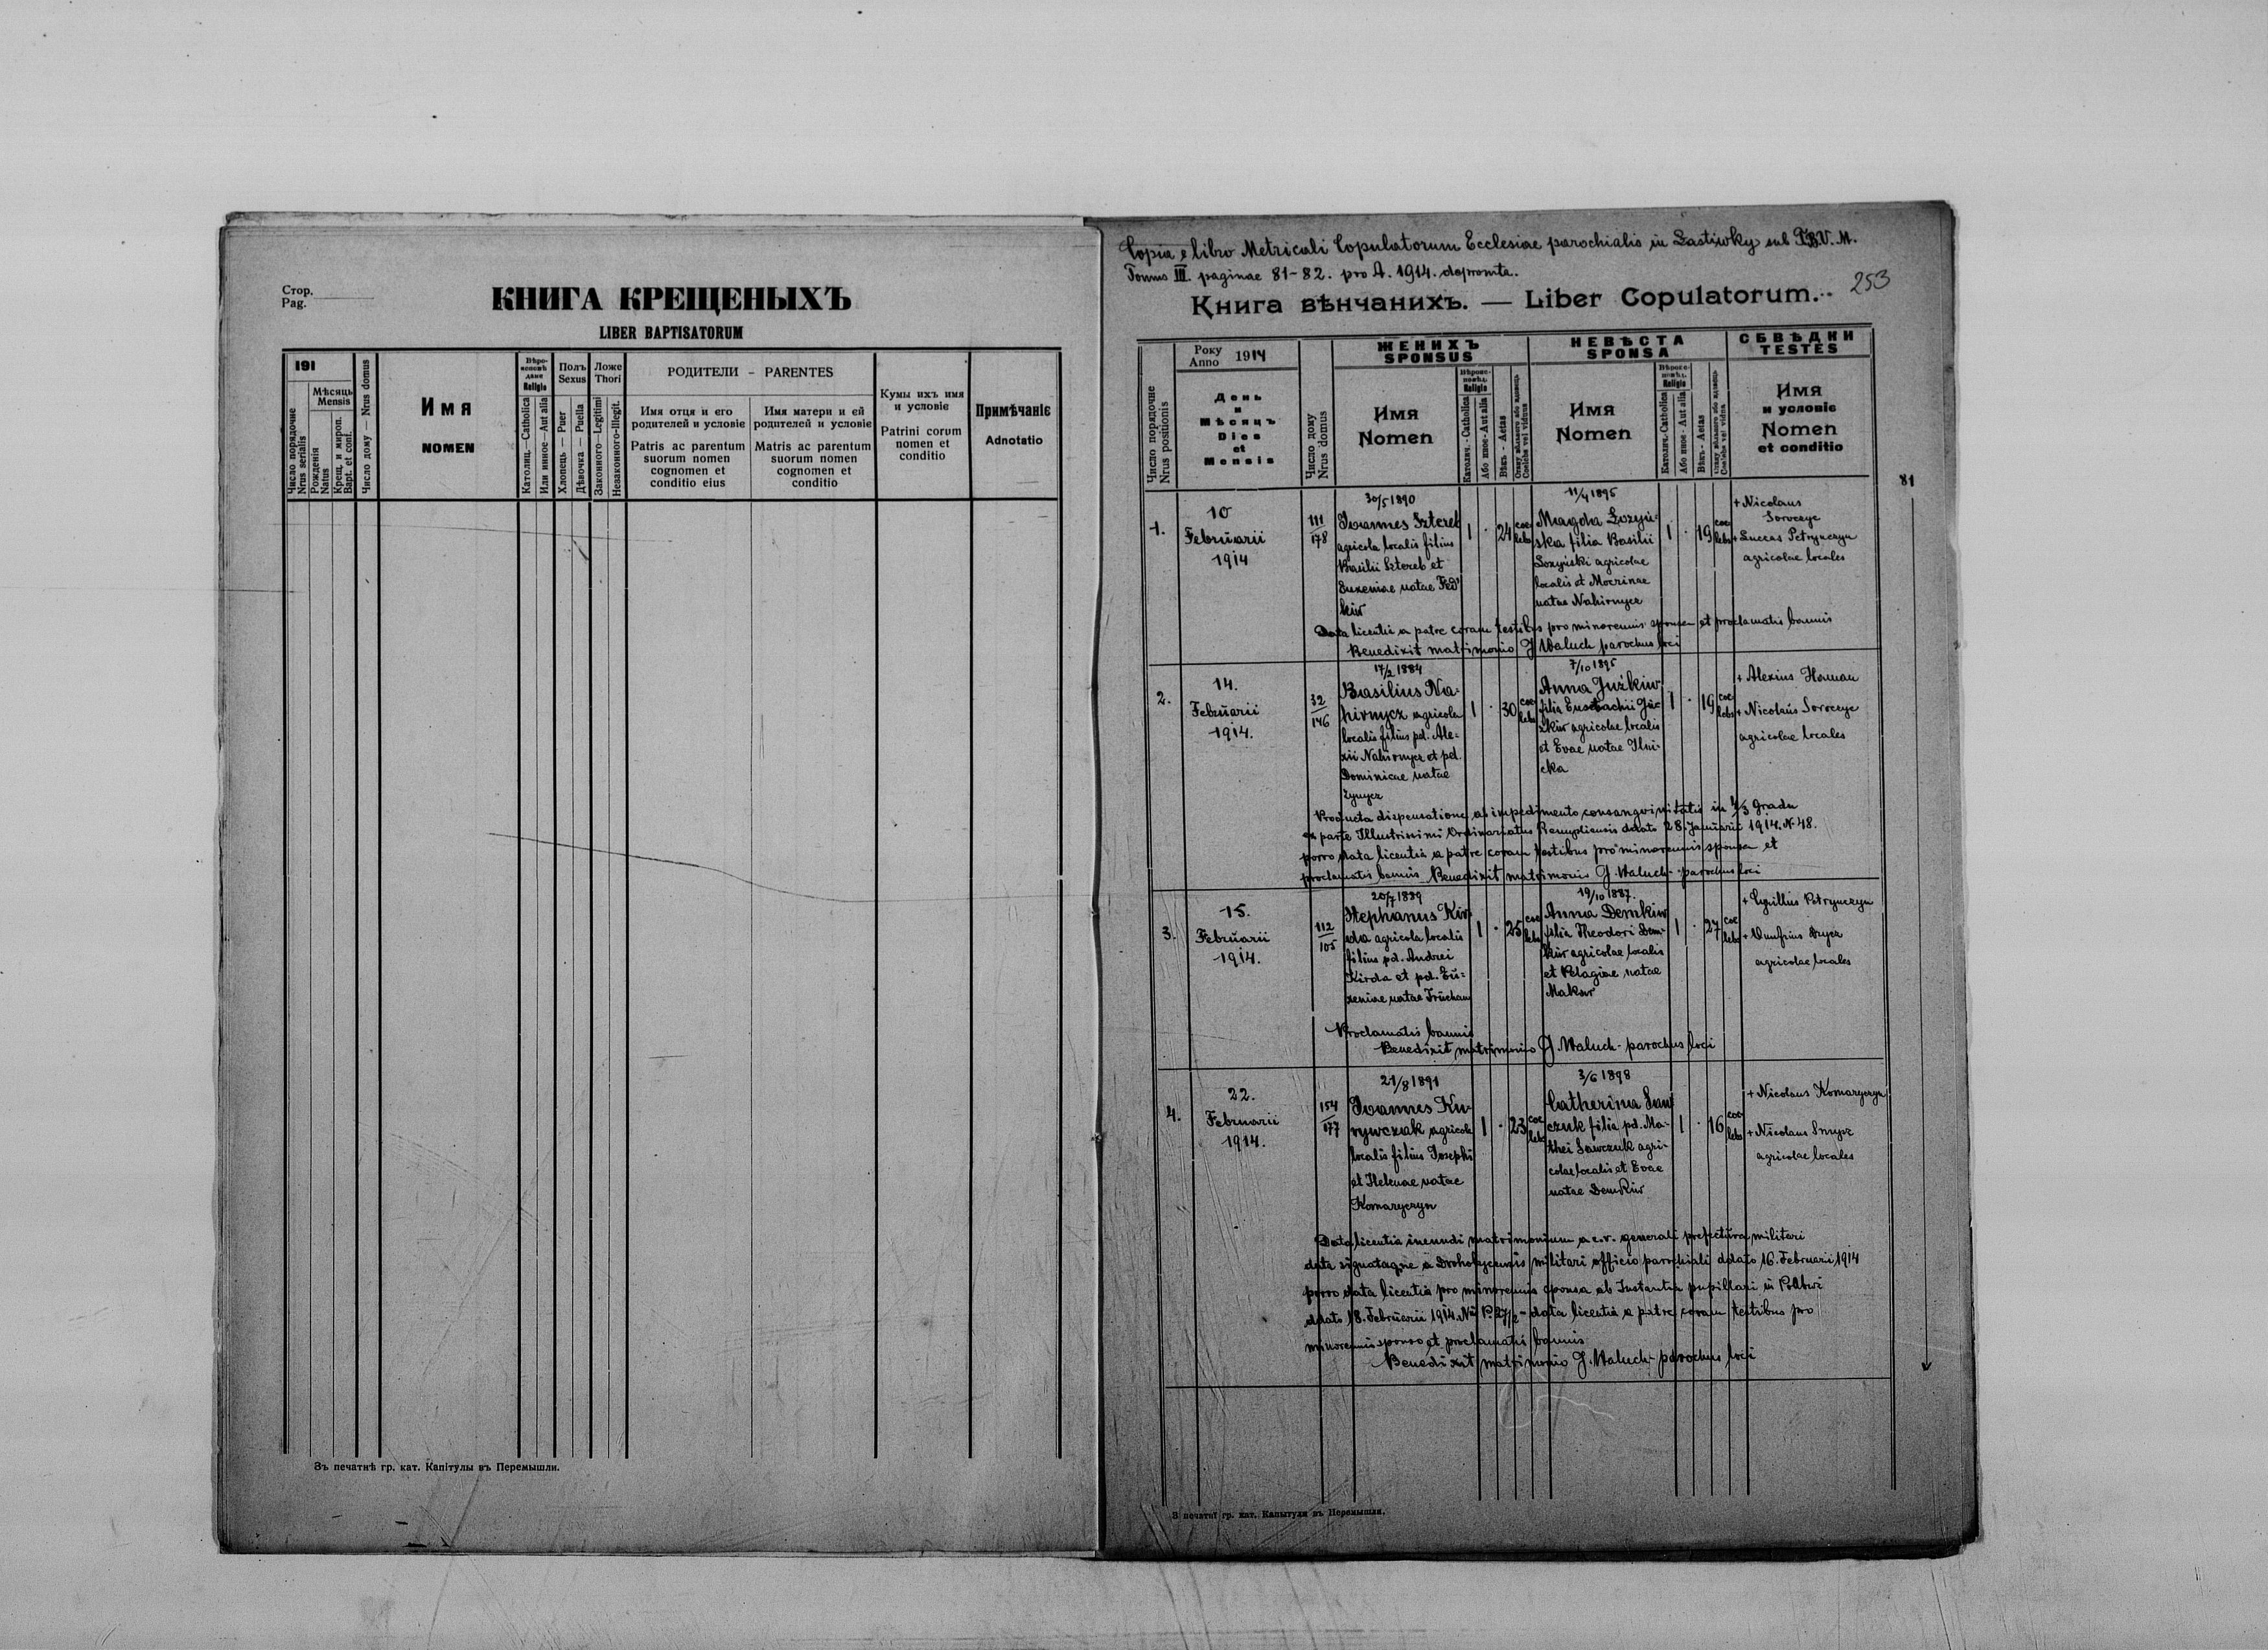 Стор.
Pag.
КНИГА КРЕЩЕНЫХЪ
LIBER BAPTISATORUM
191
Число порядочне
Nrus serialis
Мѣсяць
Mensis
Рожденія
Natus
Крещ. и мироп.
Bapt. et conf.
Число дому — Nrus domus
Имя
NOMEN
Religio
Католиц.—Catholica
Или инное—Aut alia
Полъ
Sexus
Хлопець — Puer
Дѣвочка — Puella
Ложе
Thori
Законного—Legitimi
Незаконного-Illegit.
РОДИТЕЛИ – PARENTES
Имя отця и его
родителей и условіе
Patris ac parentum
suorum nomen
cognomen et
conditio eius
Имя матери и ей
родителей и условіе
Matris ac parentum
suorum nomen
cognomen et
conditio
Кумы ихъ имя
и условіе
Patrini eorum
nomen et
conditio
Примѣчаніє
Adnotatio
Зъ печатнѣ гр. кат. Капітулы въ Перемышли.
Copia e libro Metricali Copulatorum Ecclesiae parochialis in Łastiwky sub T.B.V.M.
Tomus III. paginae 81-82. pro A. 1914. depromta.
253
Книга вѣнчанихъ. — Liber Copulatorum.
Число порядочне
Nrus positionis
Року
Anno 1914
День
и
Мѣсяцъ
Dies
et
Mensis
Число дому
Nrus domus
ЖЕНИХЪ
SPONSUS
Имя
Nomen
Religio
Католич. - Catholica
Або инное - Aut alia
Вѣкъ - Aetas
Coelebs vel viduus
НЕВѢСТА
SPONSA
Имя
Nomen
Religio
Католич.- Catholica
Або инное - Aut alia
Вѣкъ - Aetas
Coelebs vel vidua
СВѢДКИ
TESTES
Имя
и условіє
Nomen
et conditio
81
1.
10
Februarii
1914
111
178
30/5 1890
Joannes Sztereb
agricola localis filius
Basilii Sztereb et
Euxeniae natae Fed'
kiw
1 · 24 coe
lebs
11/4 1895
Magda Łozyń-
ska filia Basilii
Łozyński agricolae
localis et Mocrinae
natae Nahirnycz
1 · 19 coe
lebs
+ Nicolaus
Soroczyc
+ Luccas Petrynczyn
agricolae locales
Data licentia a patre coram testibus pro minorennis sponsa et proclamatis bannis
Benedixit matrimonio J Waluch parochus loci
2.
14.
Februarii
1914.
32
146
17/2 1884
Basilius Na-
hirnycz agricola
localis filius pd. Ale-
xii Nahirnycz et pd.
Dominicae natae
1 · 30 coe
lebs
7/10 1895
Anna Juźkiw
filia Eustachii Ju-
źkiw agricolae localis
et Evae natae Ilni-
cka
1 · 19 coe
lebs
+ Alexius Homan
+ Nicolaus Soroczyc
agricolae locales
Producta dispensatione ab impedimento consangvinitatis in 4/3 gradu
ex parte Illustrissimi Ordinariatus Premysliensis ddato 28. Januarii 1914. N. 48.
porro data licentia a patre coram testibus pro minorennis sponsa et
proclamatis bannis Benedixit matrimonio J. Waluch - parochus loci
3.
15.
Februarii
1914.
112
105
20/7 1889
Stephanus Kir-
da agricola localis
filius pd. Andrei
Kirda et pd. Eu-
xeniae natae Truchan
1 · 25 coe
lebs
19/10 1887.
Anna Demkiw
filia Theodori Dem-
kiw agricolae localis
et Pelagiae natae
Maksw
1 · 27 coe
lebs
+ Cyrillus Petrynczyn
+ Onufrius
agricolae locales
Proclamatis bannis
Benedixit matrimonio J. Waluch - parochus loci
4.
22.
Februarii
1914.
154
177
21/8 1891
Joannes Ku-
rywczak agricola
localis filius Josephi
et Helenae natae
Komaryczyn
1 · 23 coe
lebs
3/6 1898
Catherina Saw-
czuk filia pd. Ma-
thei Sawczuk agri-
colae localis et Evae
natae Demkiw
1 · 16 coe
lebs
+ Nicolaus Komaryczyn
+ Nicolaus Smycz
agricolae locales
Data licentia ineundi matrimonium a c.r. generali prefectura militari
data signataque a Drohobycensis militari officio parochiali ddato 16. Februarii 1914
porro data licentia pro minorennis sponsa ab Instantia pupillari in
ddato 18. Februarii 1914. - data licentia a patre coram testibus pro
minorennis sponso et proclamatis bannis
Benedixit matrimonio J. Waluch - parochus loci
З печатнї гр. кат. Капытули въ Перемышли.